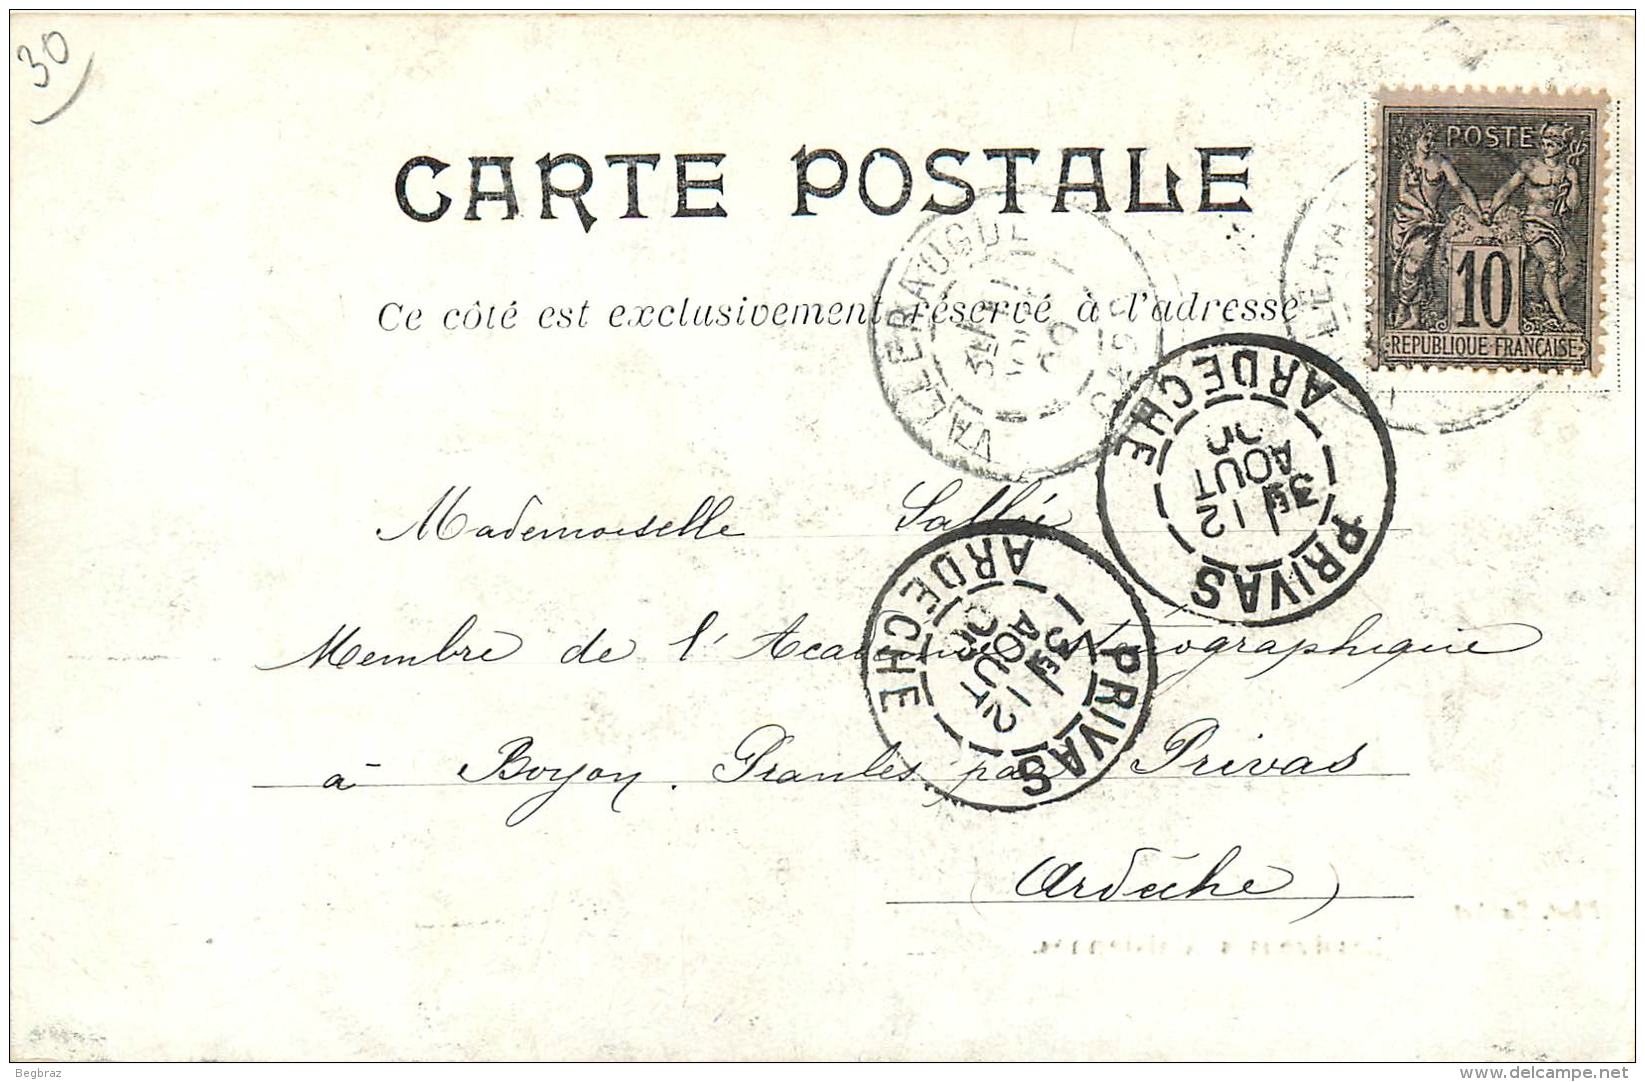 30
CARTE POSTALE
POSTE
10
REPUBLIQUE FRANÇAISE
Ce côté est exclusivement réservé à l'adresse
VALLERAUGUE
PRIVAS
ARDECHE
3E
12
AOUT
00
Mademoiselle
PRIVAS
ARDECHE
3E
12
AOUT
00
Membre de l'
à Boyon. Pranles par Privas
(Ardèche)
Begbraz
www.delcampe.net